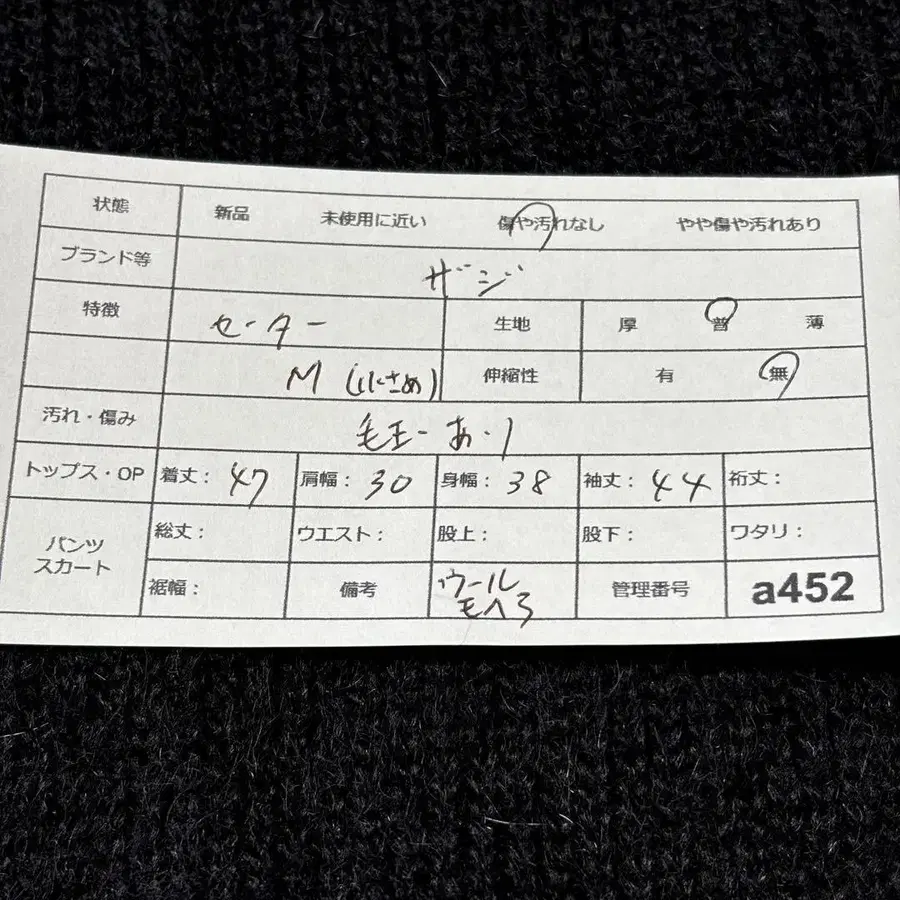 状態 新品 未使用に近い 傷や汚れなし やや傷や汚れあり
ブランド等 ザジ
特徴 セーター 生地 厚 普 薄
M (小さめ) 伸縮性 有 無
汚れ・傷み 毛玉あり
トップス・OP 着丈: 47 肩幅: 30 身幅: 38 袖丈: 44 裄丈:
パンツ スカート 総丈: ウエスト: 股上: 股下: ワタリ:
裾幅: 備考 ウール モヘア 管理番号 a452